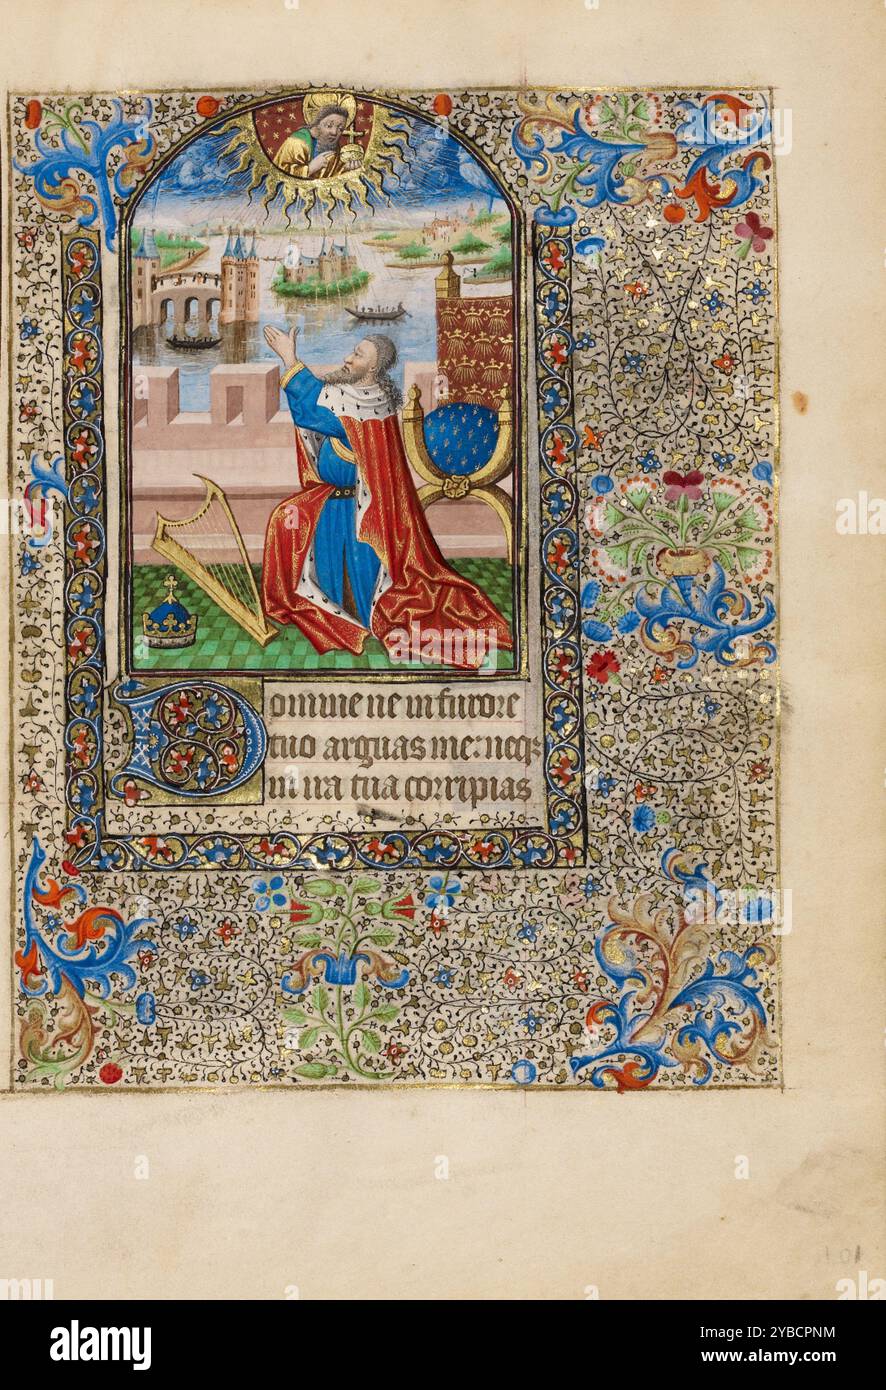 Domine ne in furore
tuo arguas me: neq;
in ira tua corripias
101
alamy
Image ID: 2YBCPNM
www.alamy.com